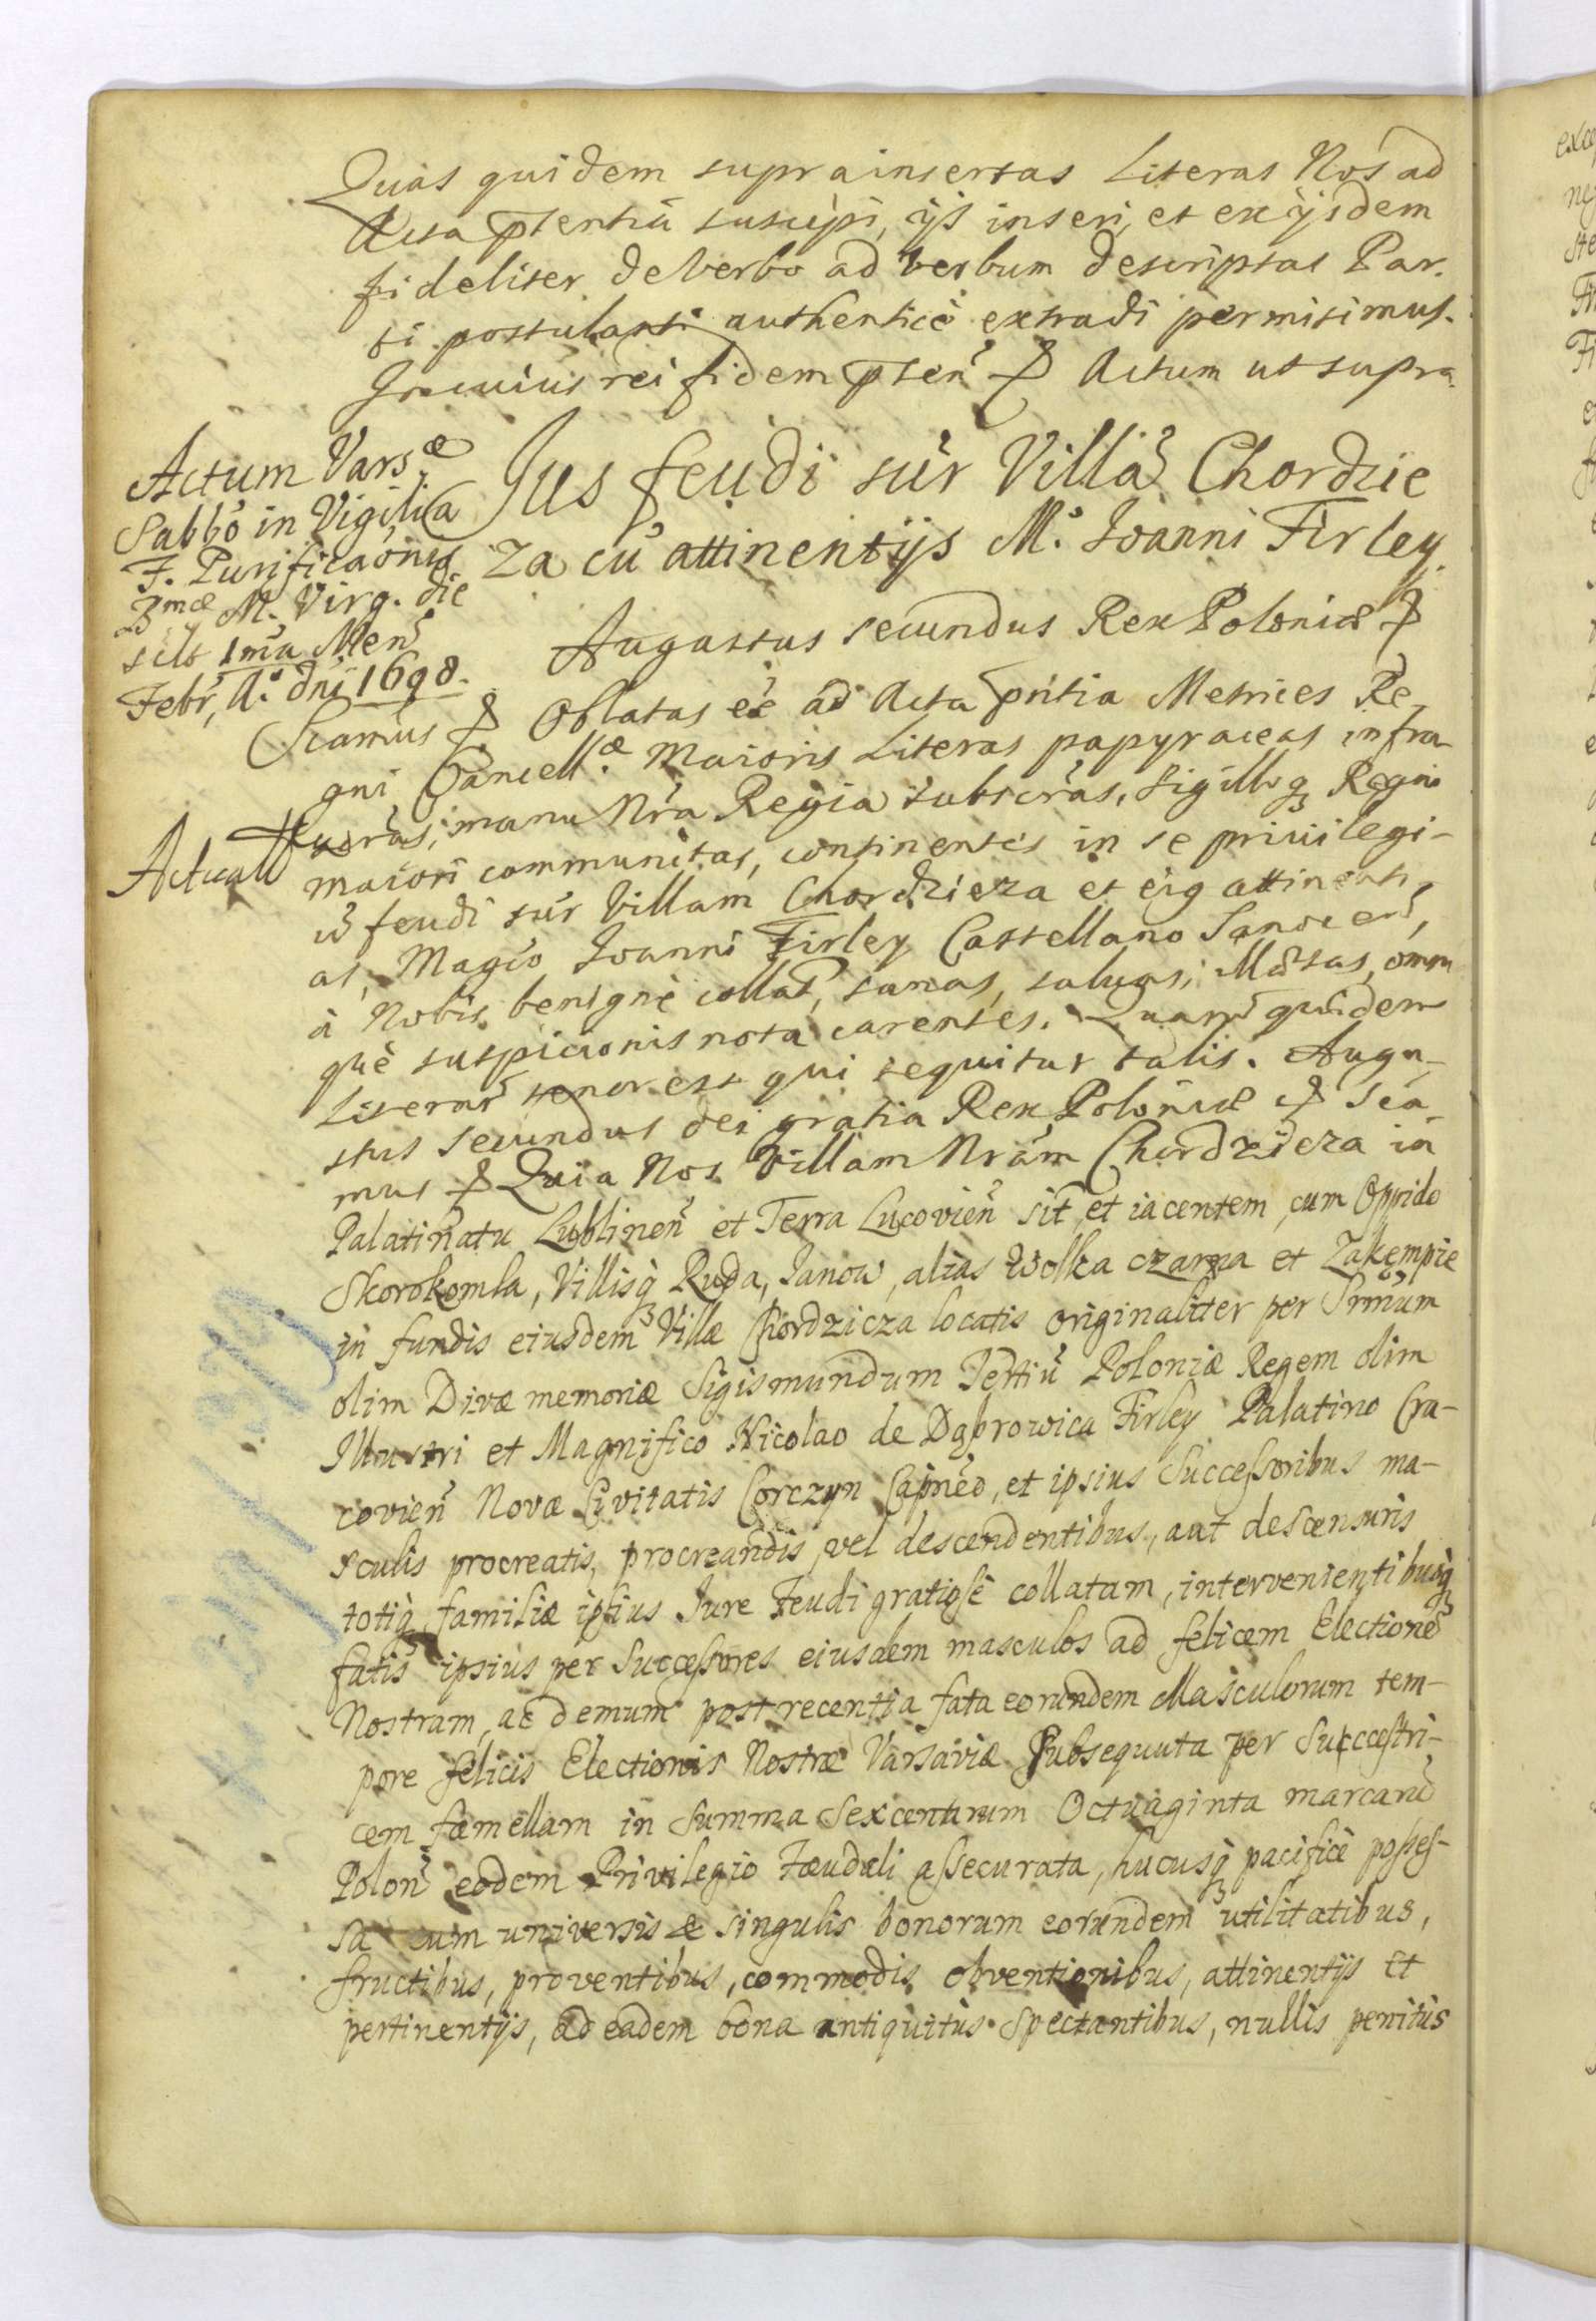 Quas quidem suprainsertas Literas Nos ad
Acta pñsentiũ suscipi, ijs inseri, et ex ijsdem
fideliter de verbo ad verbum descriptas Par-
ti postulanti authenticè extradi permisimus.
In cuius rei fidem pñsen̄ & Actum ut supra
Actum Vars:æ
Sabbo in Vigilia
F. Purificaõnis
Bmæ M. Virg. die
scilt 1ma Men̄
Febr, A.o dni 1698.
Jus feudi sup̃r Villã Chordzie
za cũ attinentijs M.o Joanni Firley.
Augustus secundus Rex Poloniæ &
Sciamus & Oblatas eẽ ad Acta pñtia Metrices Re-
gni Cancell:æ Maioris Literas papyraceas infra
Actuall
manu Nr̃a Regia subscr̃as, sigilloq Regni
maiori communitas, continentes in se priuilegi-
ũ feudi sup̃r Villam Chordzieza et eiq attinenti-
as, Magco Joanni Firley Castellano Sanocen̄,
à Nobis benignè collat̃, sanas, saluas, illæsas, omni
què suspicionis nota carentes. Quarũ quidem
Literarũ tenor est qui sequitur talis. Augu-
stus secundus dei gratia Rex Poloniæ & Scia-
mus & Quia Nos Villam Nrãm Chordzicza in
Palatinatu Lublinen̄ et Terra Lucovien̄ sit̃ et iacentem, cum Oppido
Skorokomla, Villisq Ruda, Janow, alias Wolka czarna et Zakempie
in fundis eiusdem Villæ Chordzicza locatis originaliter per Srm̃um
olim Divæ memoriæ Sigismundum Tertiũ Poloniæ Regem olim
Illustri et Magnifico Nicolao de Dąbrowica Firley Palatino Cra-
covien̄ Novæ Civitatis Corczyn Capñeo, et ipsius Successoribus ma-
sculis procreatis, procreandis, vel descendentibus, aut descensuris
totiq familiæ ipsius Jure Feudi gratiosè collatam, intervenientibusq
fatis ipsius per Successores eiusdem masculos ad felicem Electionẽ
Nostram, ac demum post recentia fata eorundem Masculorum tem-
pore felicis Electionis Nostræ Varsaviæ subsequuta per Successtri-
cem fœmellam in Summa Sexcentarum Octuaginta marcarũ
Polon̄ eodem Privilegio Fæudali assecurata, hucusq pacificè posses-
sa cum universis & singulis bonorum eorundem utilitatibus,
fructibus, proventibus, commodis obventionibus, attinentijs et
pertinentijs, ad eadem bona antiquitùs spectantibus, nullis penitùs